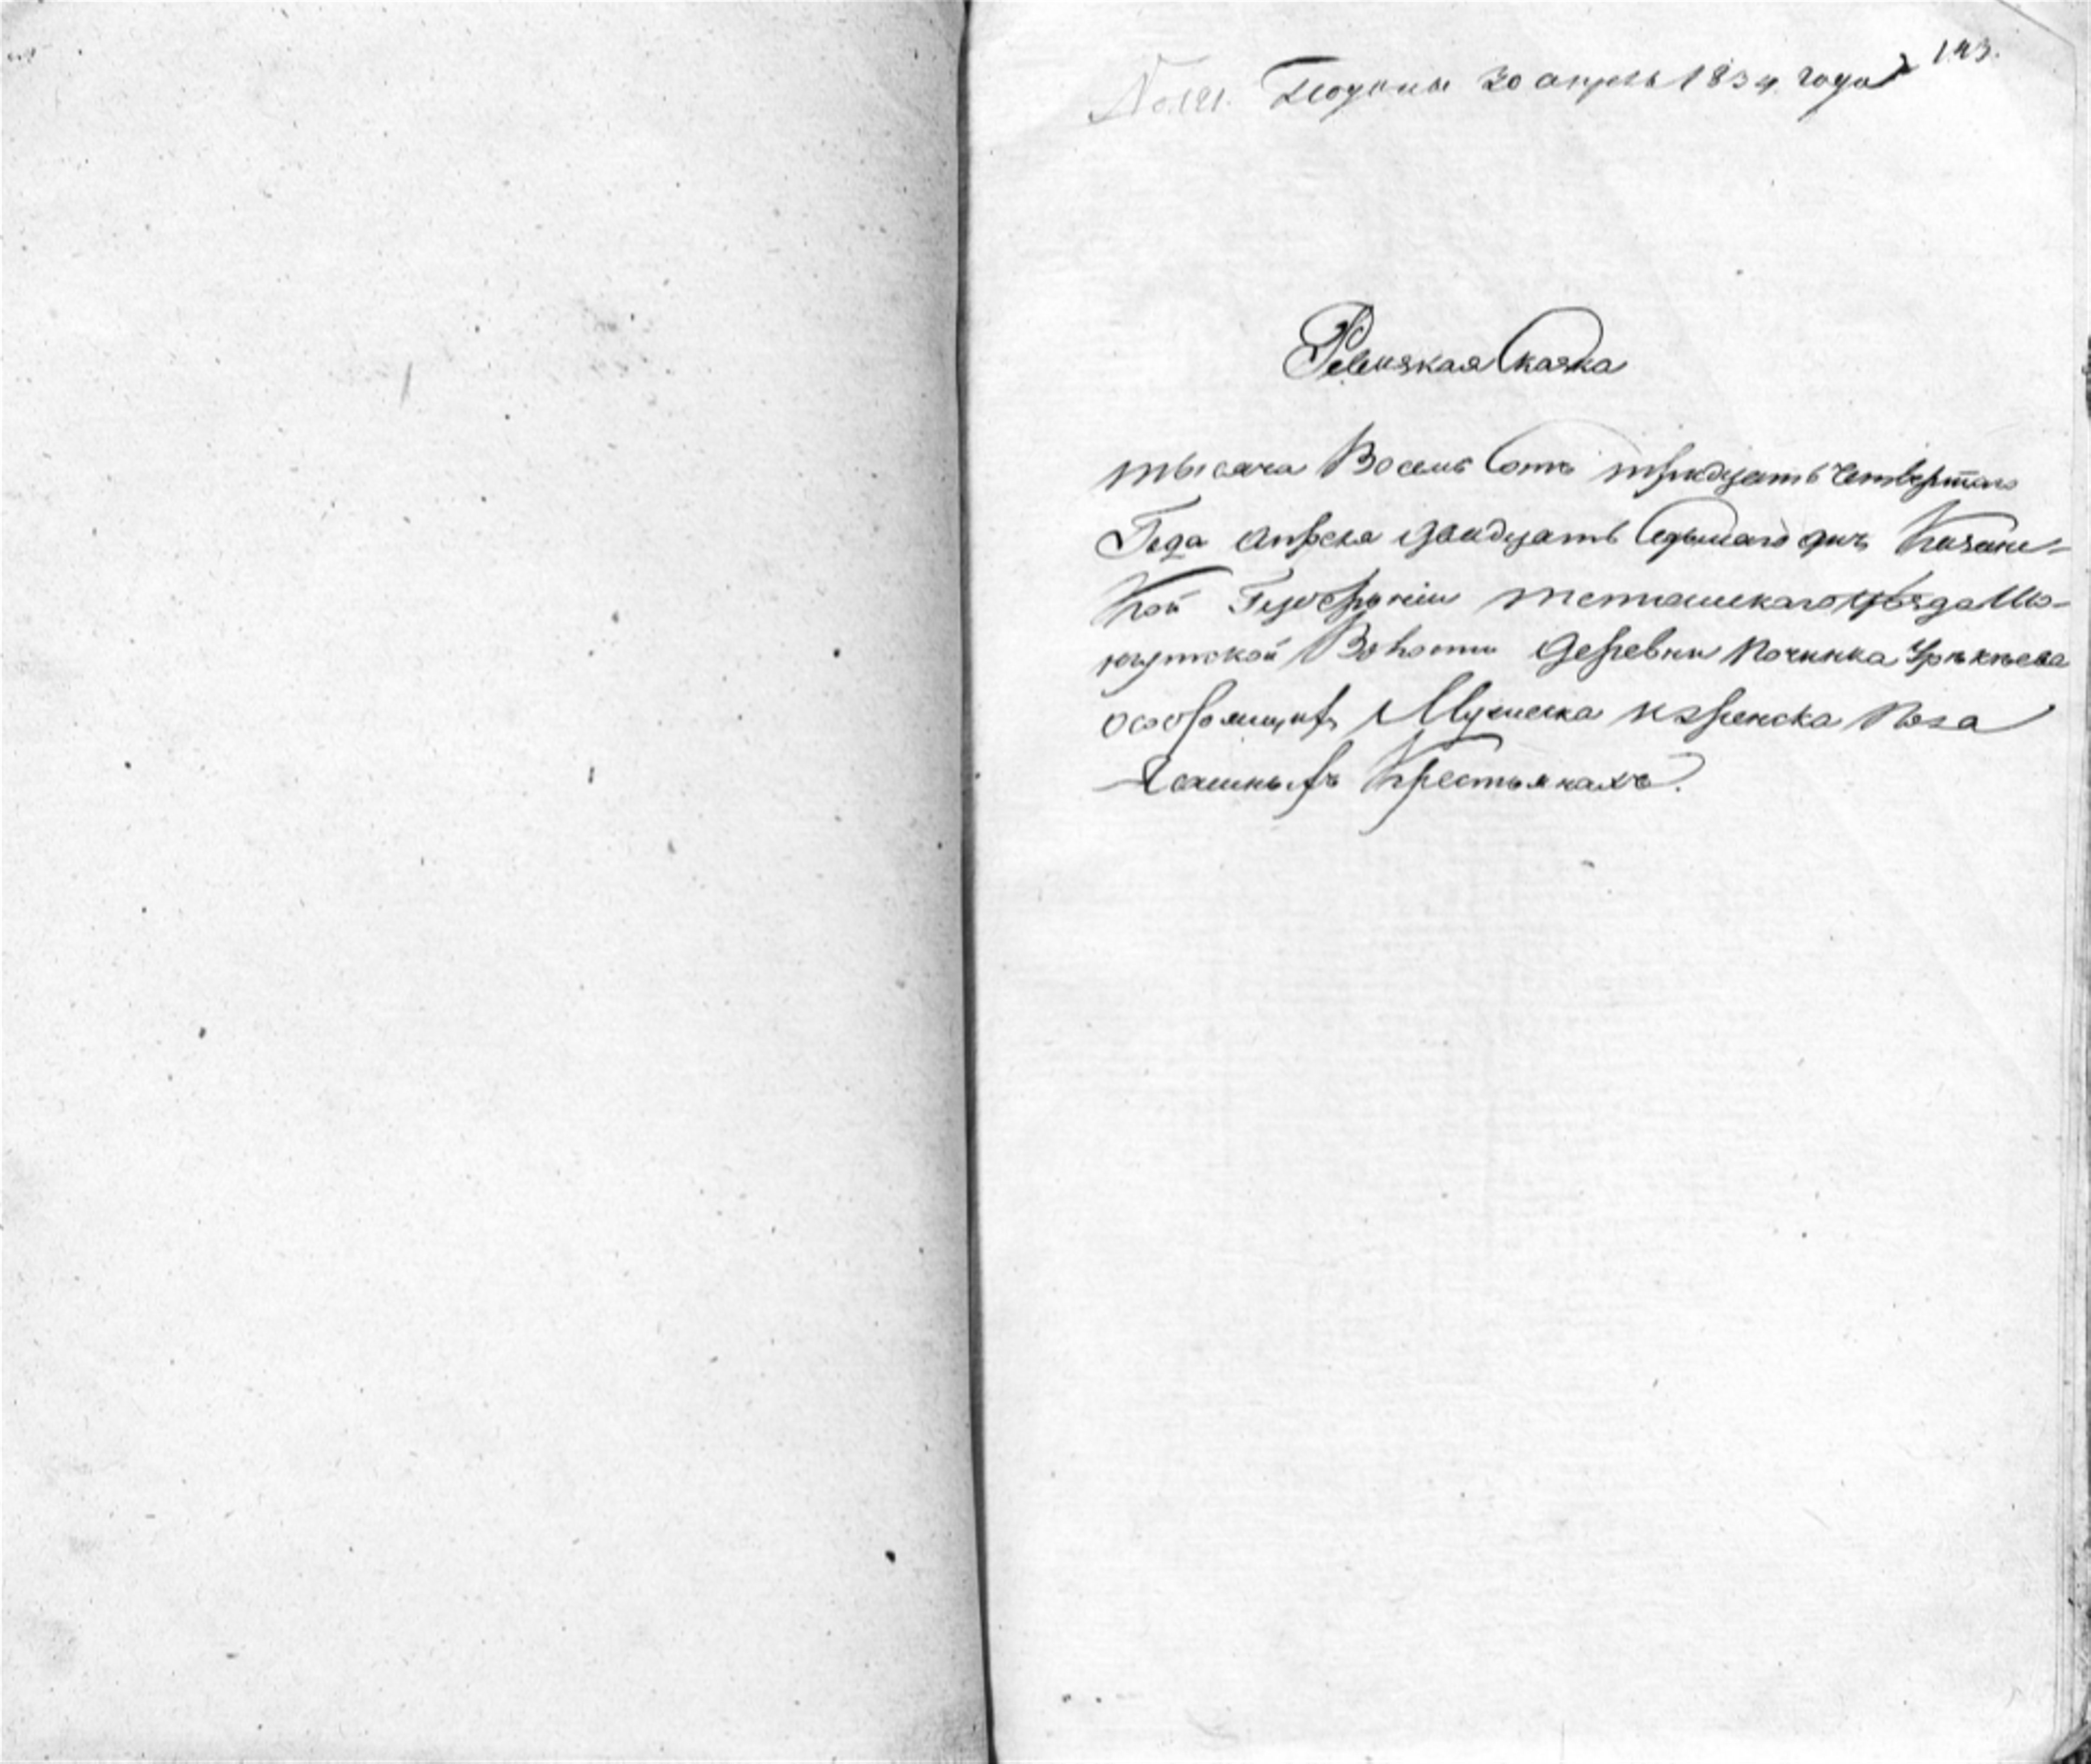 143.
№ 141. Поданы 30 апреля 1834 года
Ревизкая Сказка
тысяча Восемь Сотъ тридцать четвертаго
Года апреля двадцать Седьмаго дня Казанс=
Кой Губерніи тетюшскаго уезда Ую-
Волости деревни Починка
осостоящихъ Мужеска иженска Пола
Ясашныхъ Крестьянахъ.